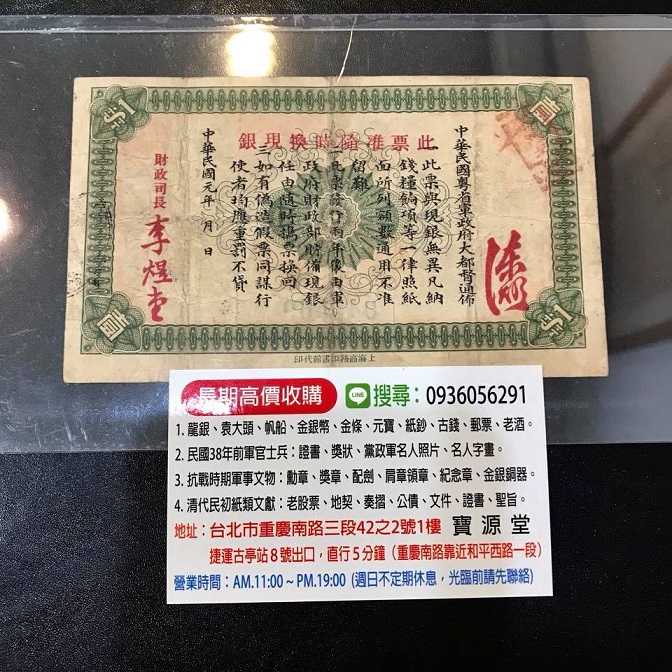 壹 壹
此票准隨時換現銀
中華民國粵省軍政府大都督通佈
一此票與現銀無異凡納
錢糧餉項等一律照紙
面所列額數通用不准
留難
二此票發行兩年後由軍
政府財政部貯備現銀
任由隨時攜票換回
三如有偽造假票同謀行
使者均應重罰不貸
中華民國元年 月 日
財政司長 李煜堂
圓 圓
上海商務印書館代印
長期高價收購 LINE 搜尋:0936056291
1. 龍銀、袁大頭、帆船、金銀幣、金條、元寶、紙鈔、古錢、郵票、老酒。
2. 民國38年前軍官士兵:證書、獎狀、黨政軍名人照片、名人字畫。
3. 抗戰時期軍事文物:勳章、獎章、配劍、肩章領章、紀念章、金銀銅器。
4. 清代民初紙類文獻:老股票、地契、奏摺、公債、文件、證書、聖旨。
地址:台北市重慶南路三段42之2號1樓 寶源堂
捷運古亭站8號出口,直行5分鐘(重慶南路靠近和平西路一段)
營業時間:AM.11:00~PM.19:00 (週日不定期休息,光臨前請先聯絡)